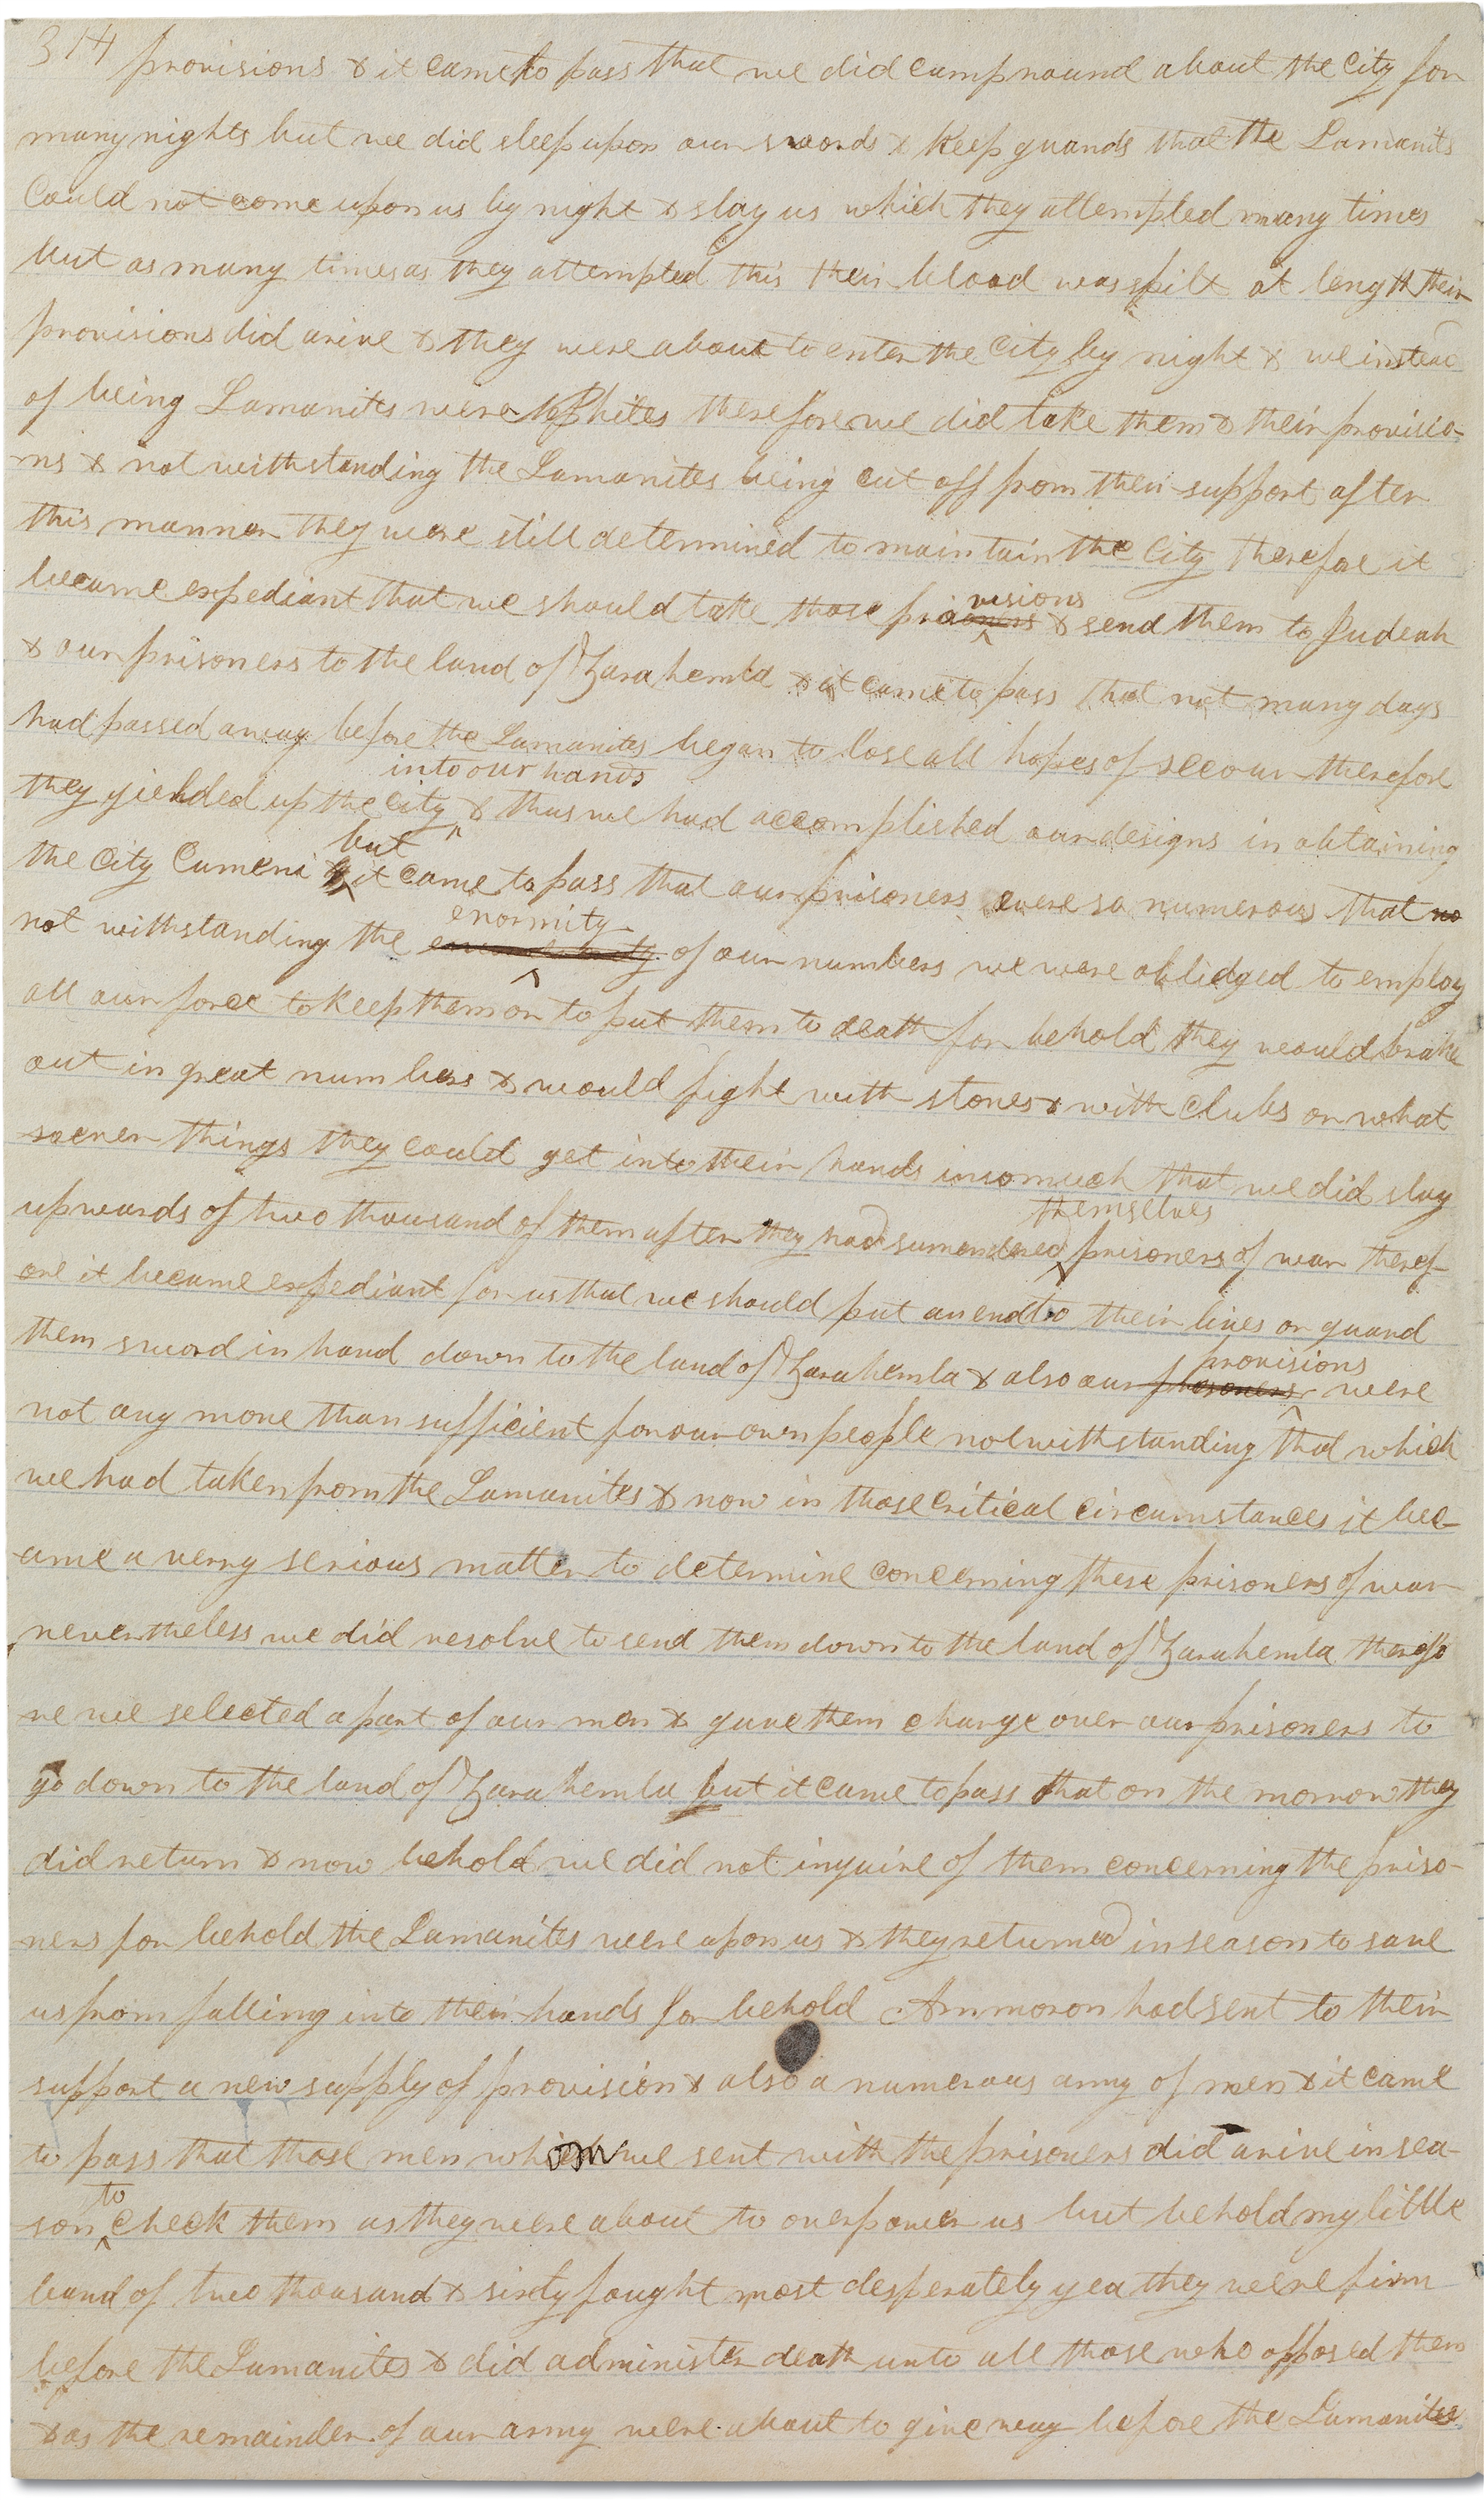 314 provisions & it came to pass that we did camp round about the City for
many nights but we did sleep upon our swords & keep guards that the Lamanits
could not come upon us by night & slay us which they attempted many times
but as many times as they attempted this their blood was spilt at length their
provisions did arive & they were about to enter the City by night & we instead
of being Lamanites were Nephites therefore we did take them & their provisio-
-ns & notwithstanding the Lamanites being cut off from their support after
this manner they were still determined to maintain the City therefore it
became expediant that we should take those provisions & send them to Judeah
& our prisoners to the land of Zarahemla & it came to pass that not many days
had passed away before the Lamanites began to lose all hopes of secour therefore
they yielded up the city into our hands & thus we had accomplished our designs in obtaining
the City Cumeni but it came to pass that our prisoners were so numerous that no
not withstanding the enormity of our numbers we were obledged to employ
all our force to keep them or to put them to death for behold they would brake
out in great numbers & would fight with stones & with clubs or what
soever things they could get into their hands insomuch that we did slay
upwards of two thousand of them after they had surrendered themselves prisoners of war theref-
ore it became expediant for us that we should put an end to their lives or guard
them sword in hand down to the land of Zarahemla & also our prisoners provisions were
not any more than sufficient for our own people notwithstanding that which
we had taken from the Lamanites & now in those critical circumstances it bec-
-ame a verry serious matter to determine concerning these prisoners of war
nevertheless we did resolve to send them down to the land of Zarahemla therefo
re we selected a part of our men & gave them charge over our prisoners to
go down to the land of Zarahemla but it came to pass that on the morrow they
did return & now behold we did not inquire of them concerning the priso-
ners for behold the Lamanites were upon us & they returned in season to save
us from falling into their hands for behold Ammoron had sent to their
support a new supply of provision & also a numerous army of men & it came
to pass that those men whom we sent with the prisoners did arive in sea-
son to check them as they were about to overpower us but behold my little
band of two thousand & sixty fought most desperately yea they were firm
before the Lamanites & did administer death unto all those who opposed them
& as the remainder of our army were about to give way before the Lamanites